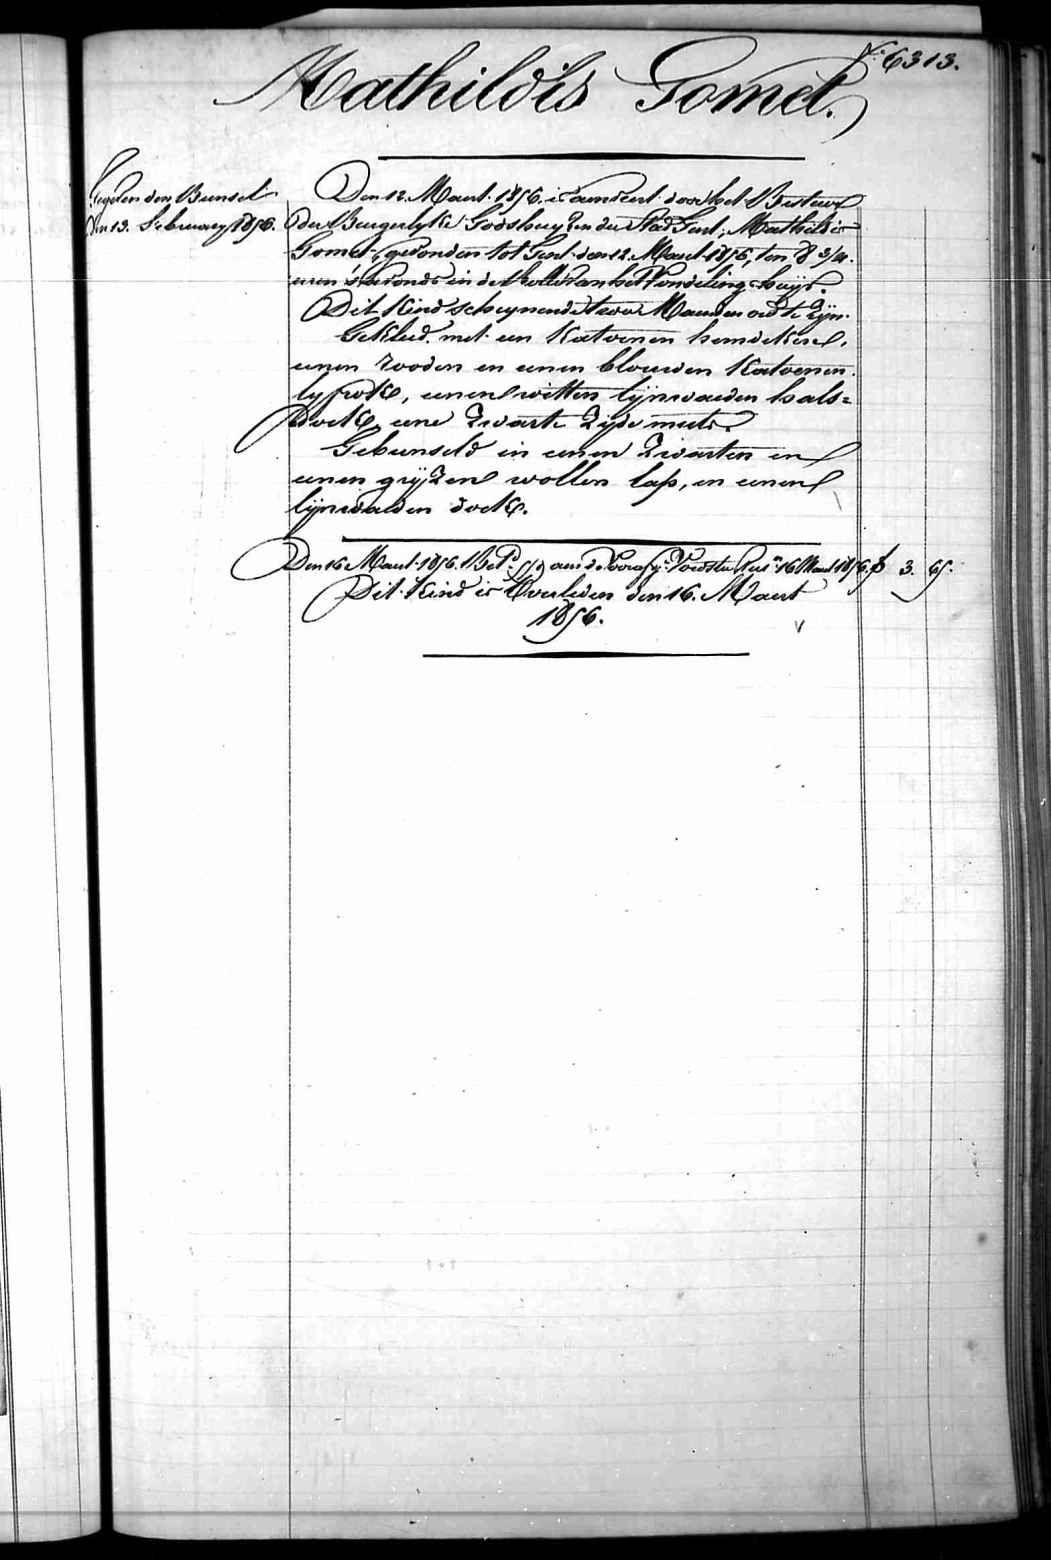 N.º 6313.
Mathildis Gomet.
den Bunsel
den 13. February 1856.
Den 12. Maert. 1856. is aenveert door het Bestuer
der Burgerlyke Godshuyzen der Stad Gent, Mathildis
Gomet, gevonden tot Gent den 12. Maert 1856, ten 8 3/4.
uren 's avonds in de Rolle van het Vondeling-huys.
Dit Kind scheynende twee Maenden oud te zyn.
Gekleed. met een Katoenen hemdeken,
eenen rooden en eenen blauwen Katoenen
lyfrok, eenen witten lijnwaeden hals=
doek, eene zwarte zyde muts.
Gebunseld in eenen zwarten en
eenen grijzen wollen lap, en eenen
lijnwaeden doek.
Den 16 Maert. 1856. Bet. aen de Voedster 16 Maert 1856. f 3. 65.
Dit Kind is Overleden den 16. Maert
1856.